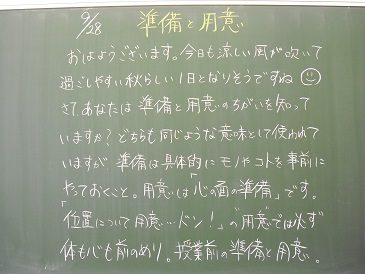 9/28 準備と用意
おはようございます。今日も涼しい風が吹いて
過ごしやすい秋らしい1日となりそうですね
さて、あなたは準備と用意のちがいを知って
いますか？どちらも同じような意味として使われて
いますが、準備は具体的にモノやコトを事前に
やっておくこと。用意は「心の面の準備」です。
「位置について用意…ドン！」の用意では必ず
体も心も前のめり。授業前の準備と用意。